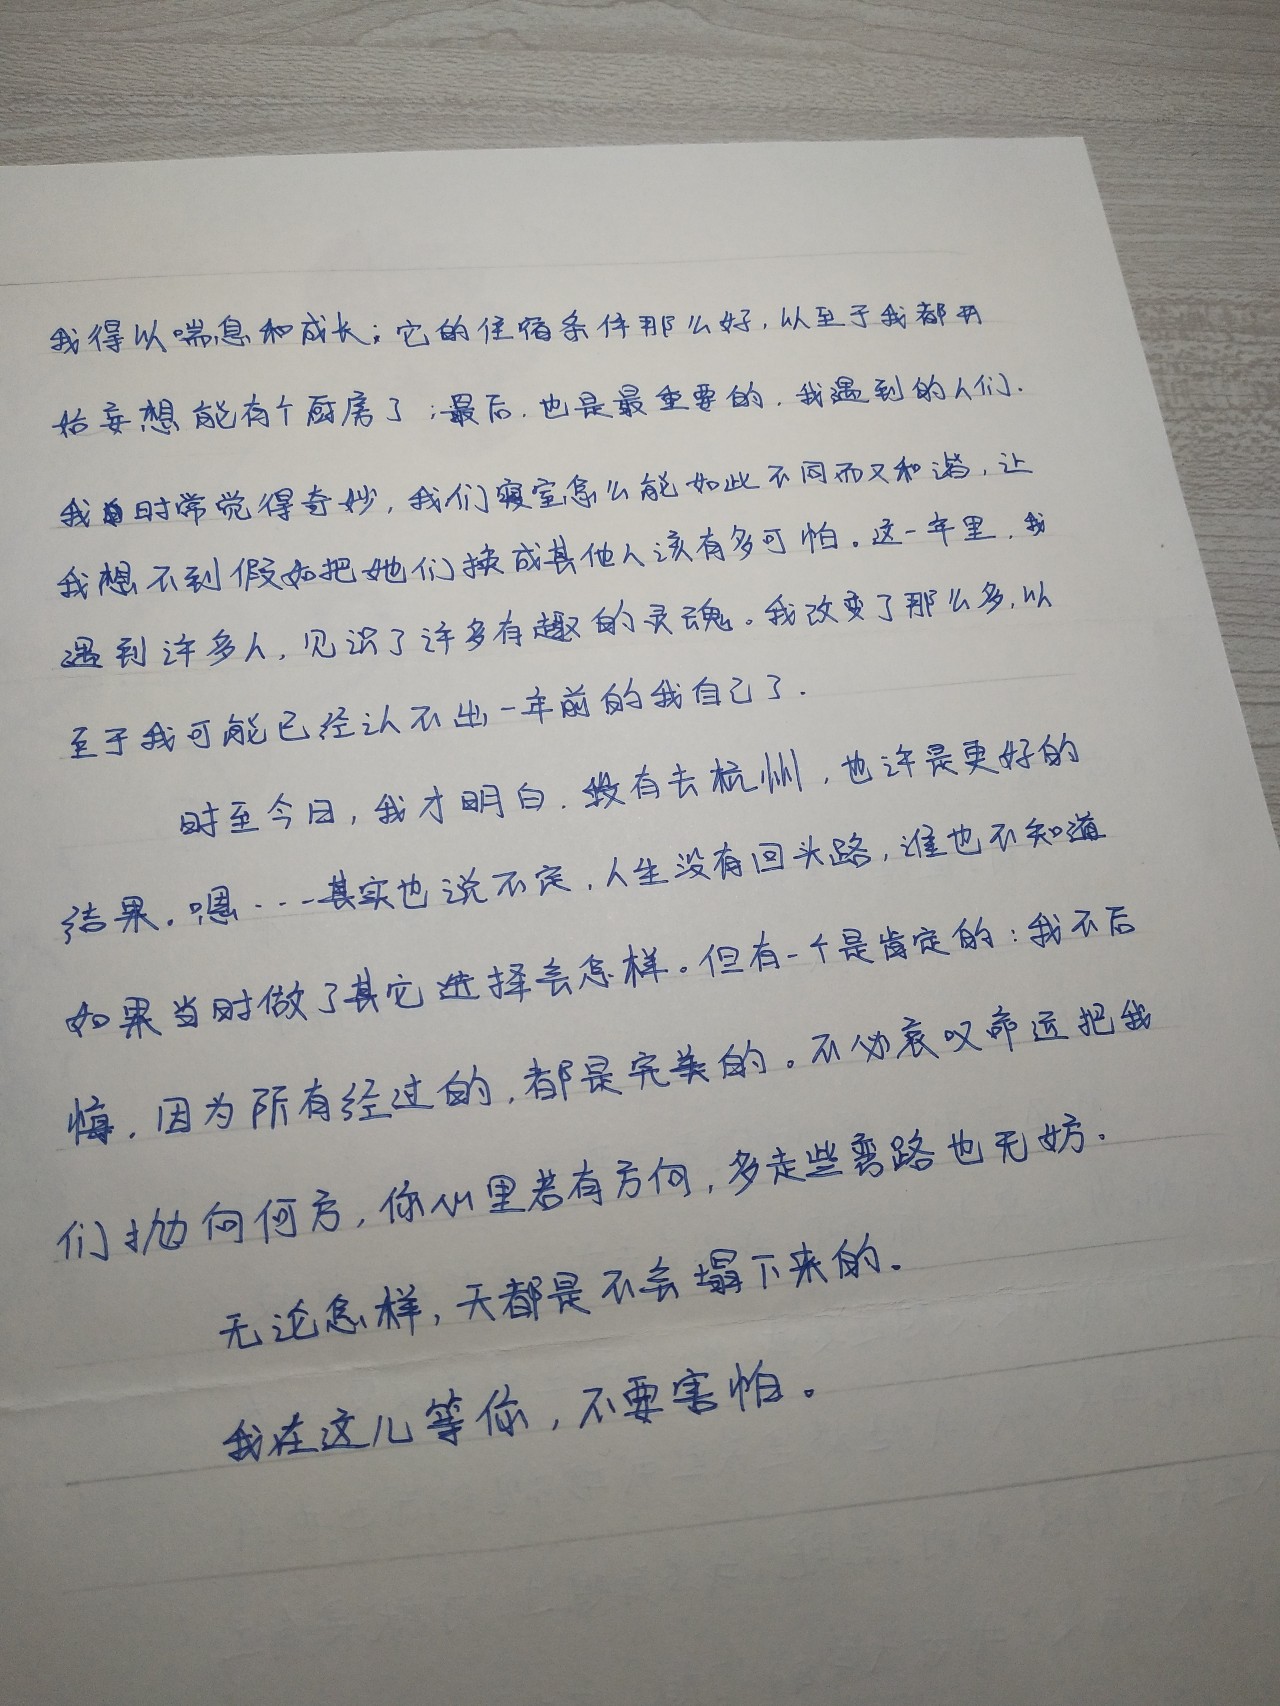 我得以喘息和成长；它的住宿条件那么好，以至于我都开
始妄想能有个厨房了；最后，也是最重要的，我遇到的人们.
我时常觉得奇妙，我们寝室怎么能如此不同而又和谐，让
我想不到假如把她们换成其他人该有多可怕。这一年里，我
遇到许多人，见识了许多有趣的灵魂。我改变了那么多，以
至于我可能已经认不出一年前的我自己了.
时至今日，我才明白，没有去杭州，也许是更好的
结果。嗯……其实也说不定，人生没有回头路，谁也不知道
如果当时做了其它选择会怎样。但有一个是肯定的：我不后
悔，因为所有经过的，都是完美的。不必哀叹命运把我
们抛向何方，你心里若有方向，多走些弯路也无妨.
无论怎样，天都是不会塌下来的。
我在这儿等你，不要害怕。